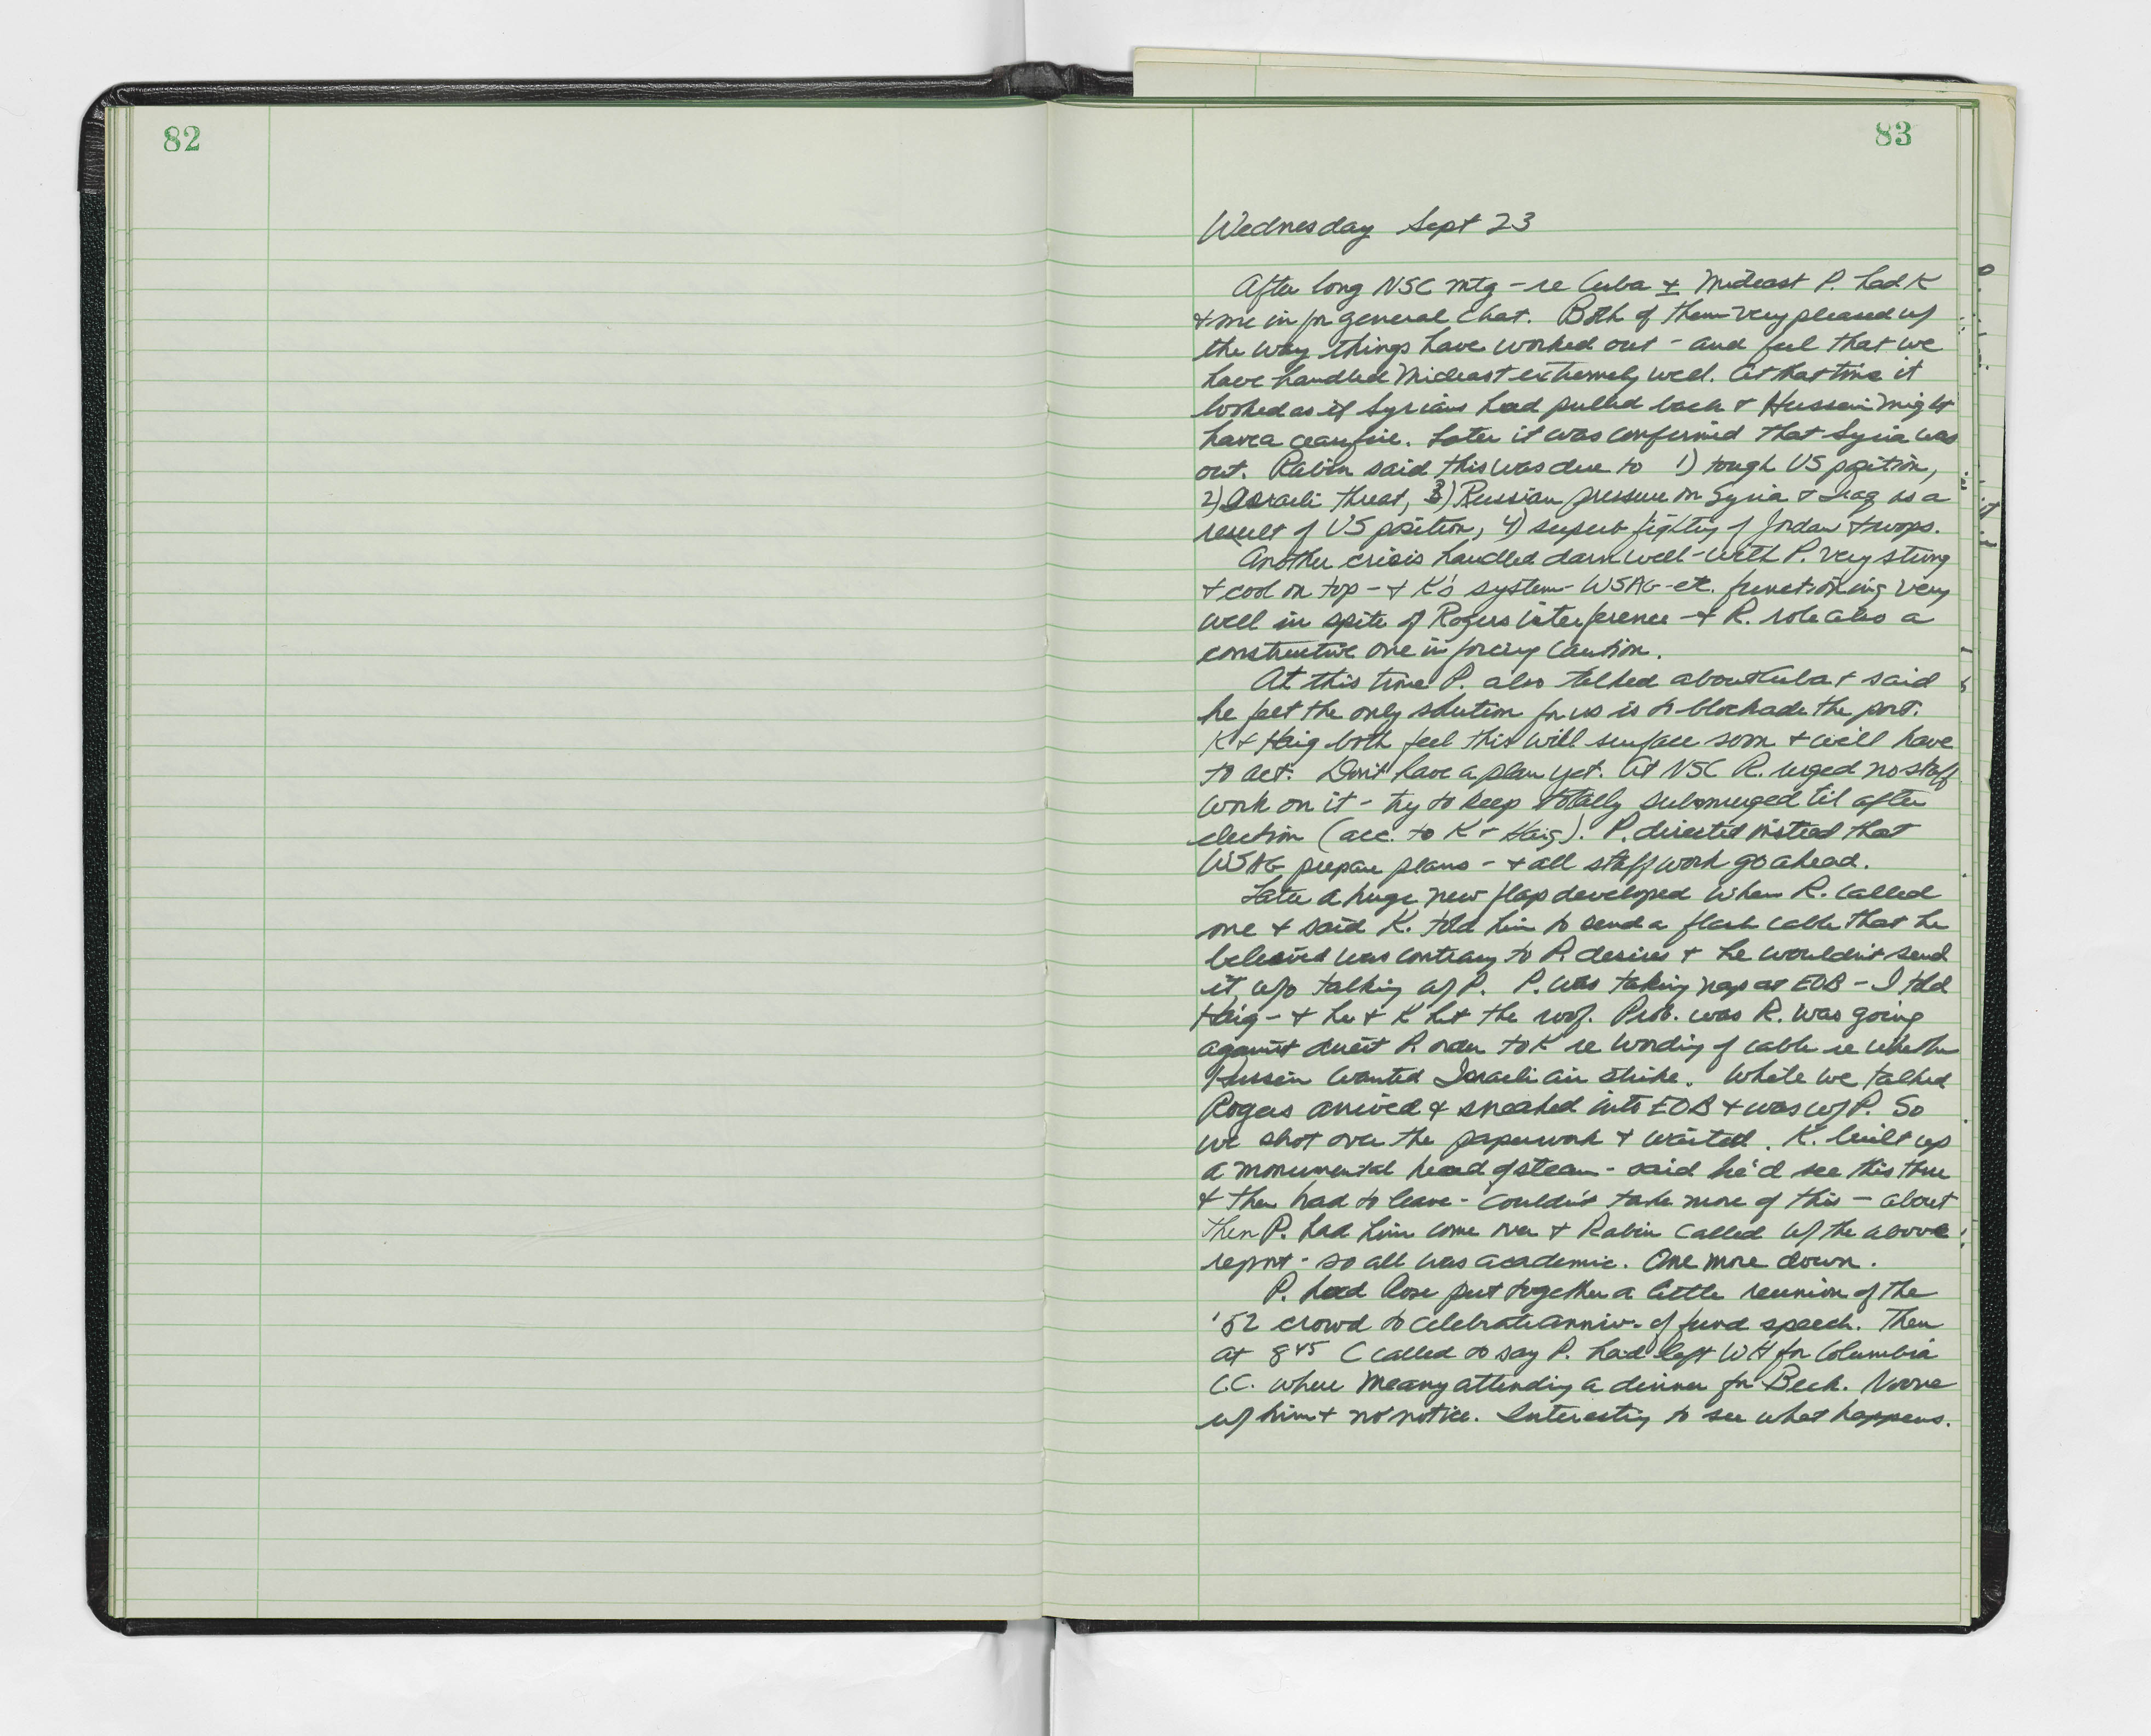 82
83
Wednesday Sept 23
After long NSC mtg - re Cuba & Mideast P. had K
& me in for general chat. Both of them very pleased w/
the way things have worked out - and feel that we
have handled Mideast extremely well. At that time it
looked as if Syrians had pulled back & Hussein might
have a ceasefire. Later it was confirmed that Syria was
out. Rabin said this was due to 1) tough US position,
2) Israeli threat, 3) Russian pressure on Syria & Iraq as a
result of US position, 4) superb fighting of Jordan troops.
Another crisis handled darn well - with P. very strong
& cool on top - & K's system - WSAG - etc. functioning very
well in spite of Rogers interference - & R. role also a
constructive one in forcing caution.
At this time P. also talked about Cuba & said
he felt the only solution for us is to blockade the port.
K & Haig both feel this will surface soon & we'll have
to act. Don't have a plan yet. At NSC R. urged no staff
work on it - try to keep totally submerged til after
election (acc. to K & Haig). P. directed instead that
WSAG prepare plans - & all staff work go ahead.
Later a huge new flap developed when R. called
me & said K. told him to send a flash cable that he
believed was contrary to P. desires & he wouldn't send
it w/o talking w/ P. P. was taking nap at EOB - I told
Haig - & he & K hit the roof. Prob. was R. was going
against direct P. order to K re wording of cable re whether
Hussein wanted Israeli air strike. While we talked
Rogers arrived & sneaked into EOB & was w/ P. So
we shot over the paperwork & waited. K. built up
a monumental head of steam - said he'd see this thru
& then had to leave - couldn't take more of this - about
then P. had him come over & Rabin called w/ the above
report - so all was academic. One more down.
P. had Rose put together a little reunion of the
'52 crowd to celebrate anniv. of fund speech. Then
at 8 45 C called to say P. had left WH for Columbia
C.C. where Meany attending a dinner for Beck. None
w/ him & no notice. Interesting to see what happens.